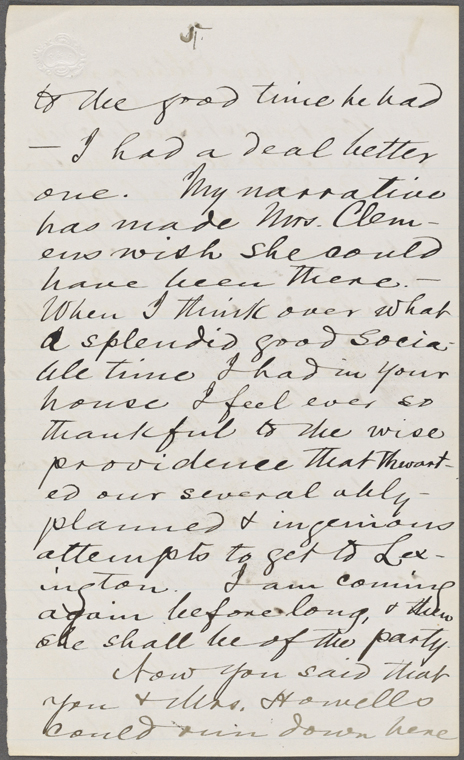 5.
to the good time he had
— I had a deal better
one. My narrative
has made Mrs. Clem-
ens wish she could
have been there. —
When I think over what
a splendid good socia-
ble time I had in your
house I feel ever so
thankful to the wise
providence that thwart-
ed our several ably-
planned & ingenious
attempts to get to Lex-
ington. I am coming
again before long, & then
she shall be of the party.
Now you said that
you & Mrs. Howells
could run down here